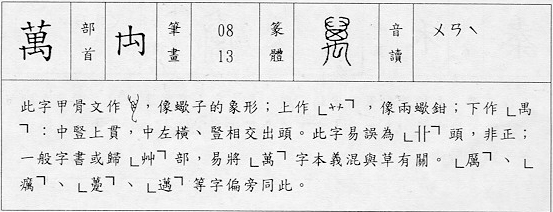 萬 部首 禸 筆畫 08 13 篆體 萬 音讀 ㄨㄢˋ
此字甲骨文作，像蠍子的象形；上作「艹」，像兩蠍鉗；下作「禺
」：中豎上貫，中左橫、豎相交出頭。此字易誤為「卝」頭，非正；
一般字書或歸「艸」部，易將「萬」字本義混與草有關。「厲」、「
癘」、「躉」、「邁」等字偏旁同此。